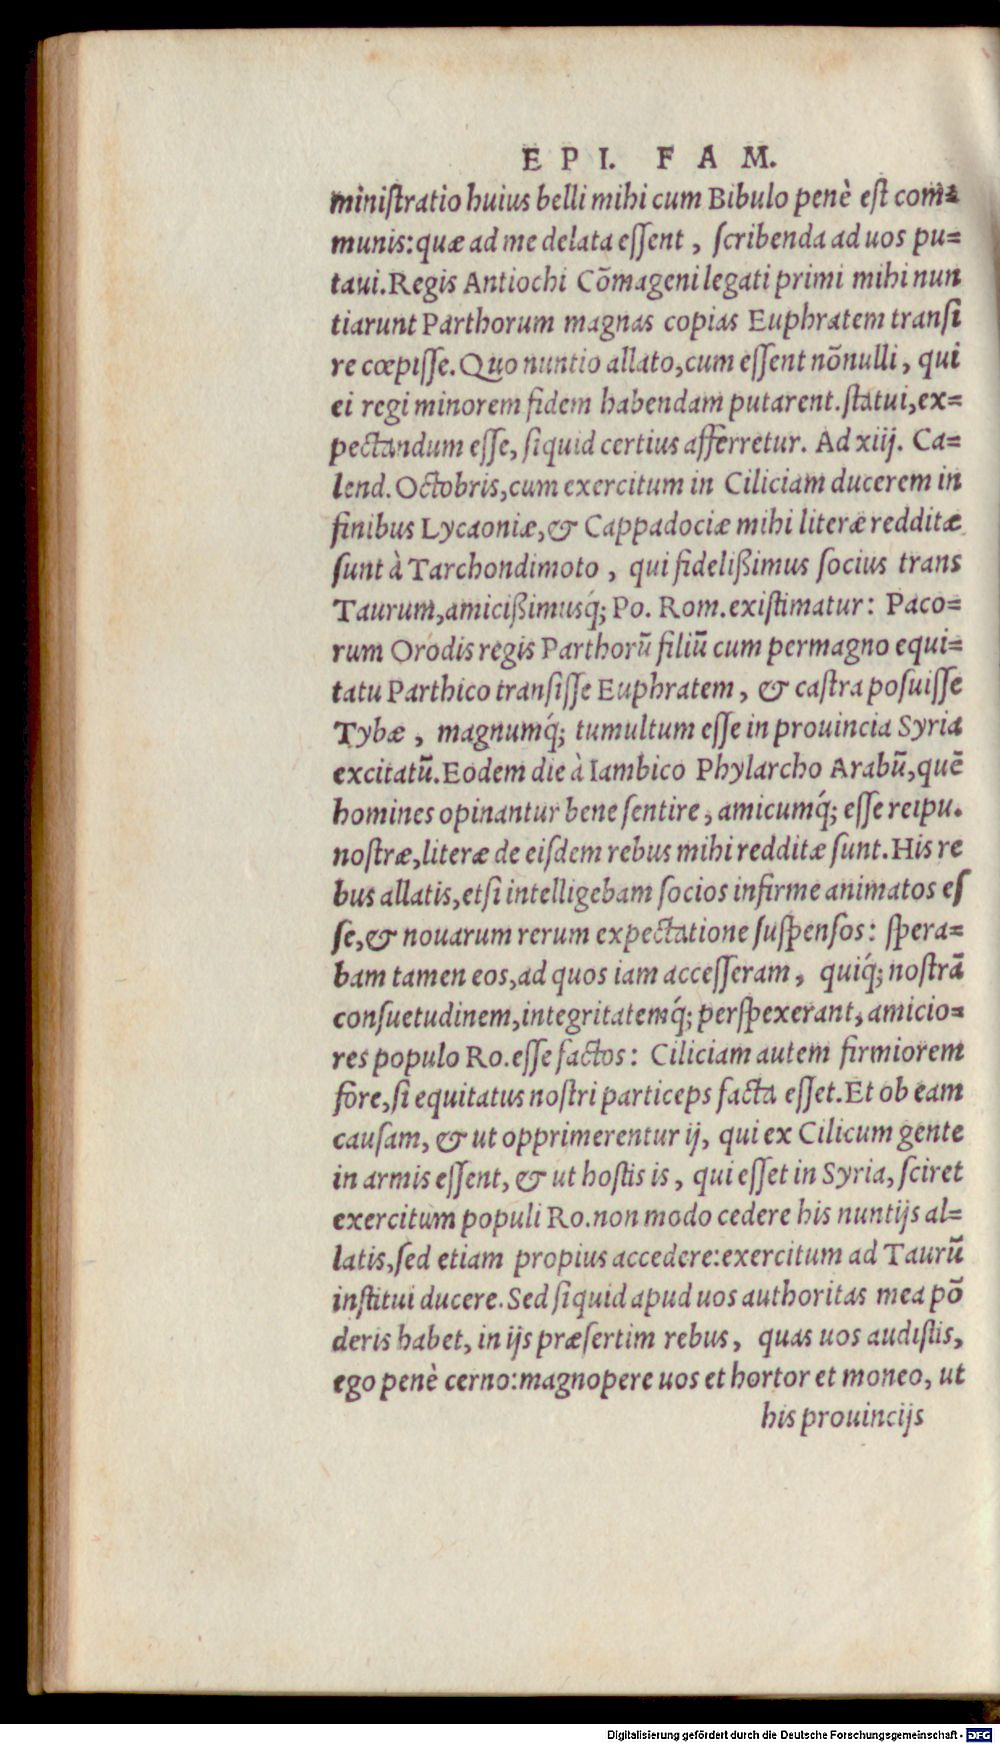 EPI. FAM.
miniſtratio huius belli mihi cum Bibulo penè eſt com=
munis:quæ ad me delata eſſent, ſcribenda ad uos pu=
taui.Regis Antiochi Cōmageni legati primi mihi nun
tiarunt Parthorum magnas copias Euphratem tranſi
re cœpiſſe.Quo nuntio allato,cum eſſent nōnulli, qui
ei regi minorem fidem habendam putarent.ſtatui,ex=
pectandum eſſe, ſiquid certius afferretur. Ad xiij. Ca=
lend.Octobris,cum exercitum in Ciliciam ducerem in
finibus Lycaoniæ,& Cappadociæ mihi literæ redditæ
ſunt à Tarchondimoto, qui fidelißimus ſocius trans
Taurum,amicißimusq́; Po. Rom.exiſtimatur: Paco=
rum Orodis regis Parthorū filiū cum permagno equi=
tatu Parthico tranſiſſe Euphratem, & caſtra poſuiſſe
Tybæ, magnumq́; tumultum eſſe in prouincia Syria
excitatū.Eodem die à Iambico Phylarcho Arabū,quē
homines opinantur bene ſentire, amicumq́; eſſe reipu.
noſtræ,literæ de eiſdem rebus mihi redditæ ſunt.His re
bus allatis,etſi intelligebam ſocios infirme animatos eſ
ſe,& nouarum rerum expectatione ſuſpenſos: ſpera=
bam tamen eos,ad quos iam acceſſeram, quiq́; noſtrā
conſuetudinem,integritatemq́; perſpexerant, amicio=
res populo Ro.eſſe factos: Ciliciam autem firmiorem
fore,ſi equitatus noſtri particeps facta eſſet.Et ob eam
cauſam, & ut opprimerentur ij, qui ex Cilicum gente
in armis eſſent, & ut hoſtis is, qui eſſet in Syria, ſciret
exercitum populi Ro.non modo cedere his nuntijs al=
latis,ſed etiam propius accedere:exercitum ad Taurū
inſtitui ducere.Sed ſiquid apud uos authoritas mea pō
deris habet, in ijs præſertim rebus, quas uos audiſtis,
ego penè cerno:magnopere uos et hortor et moneo, ut
his prouincijs
Digitalisierung gefördert durch die Deutsche Forschungsgemeinschaft - DFG